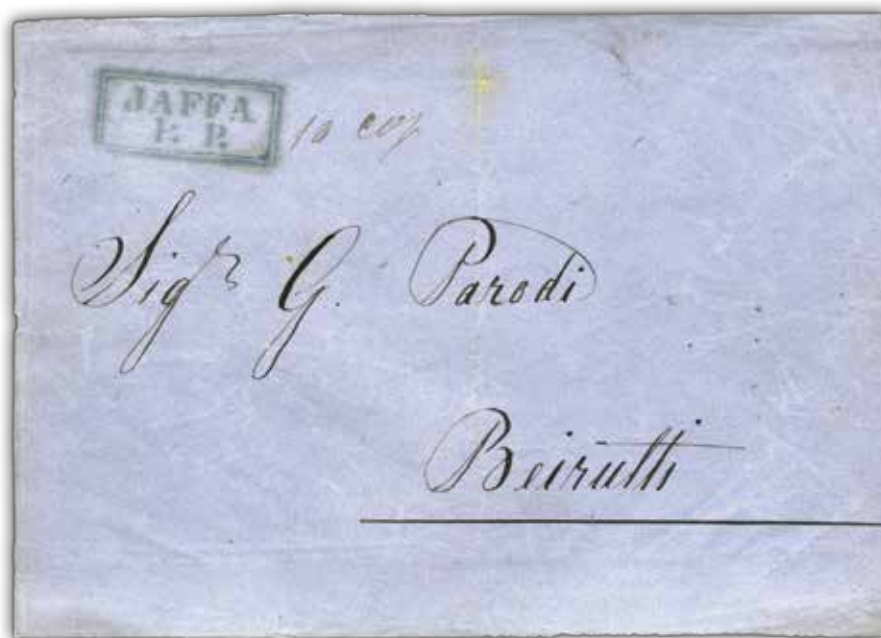 JAFFA
F. P. 10 cop
Sigr G. Parodi
Beirutti